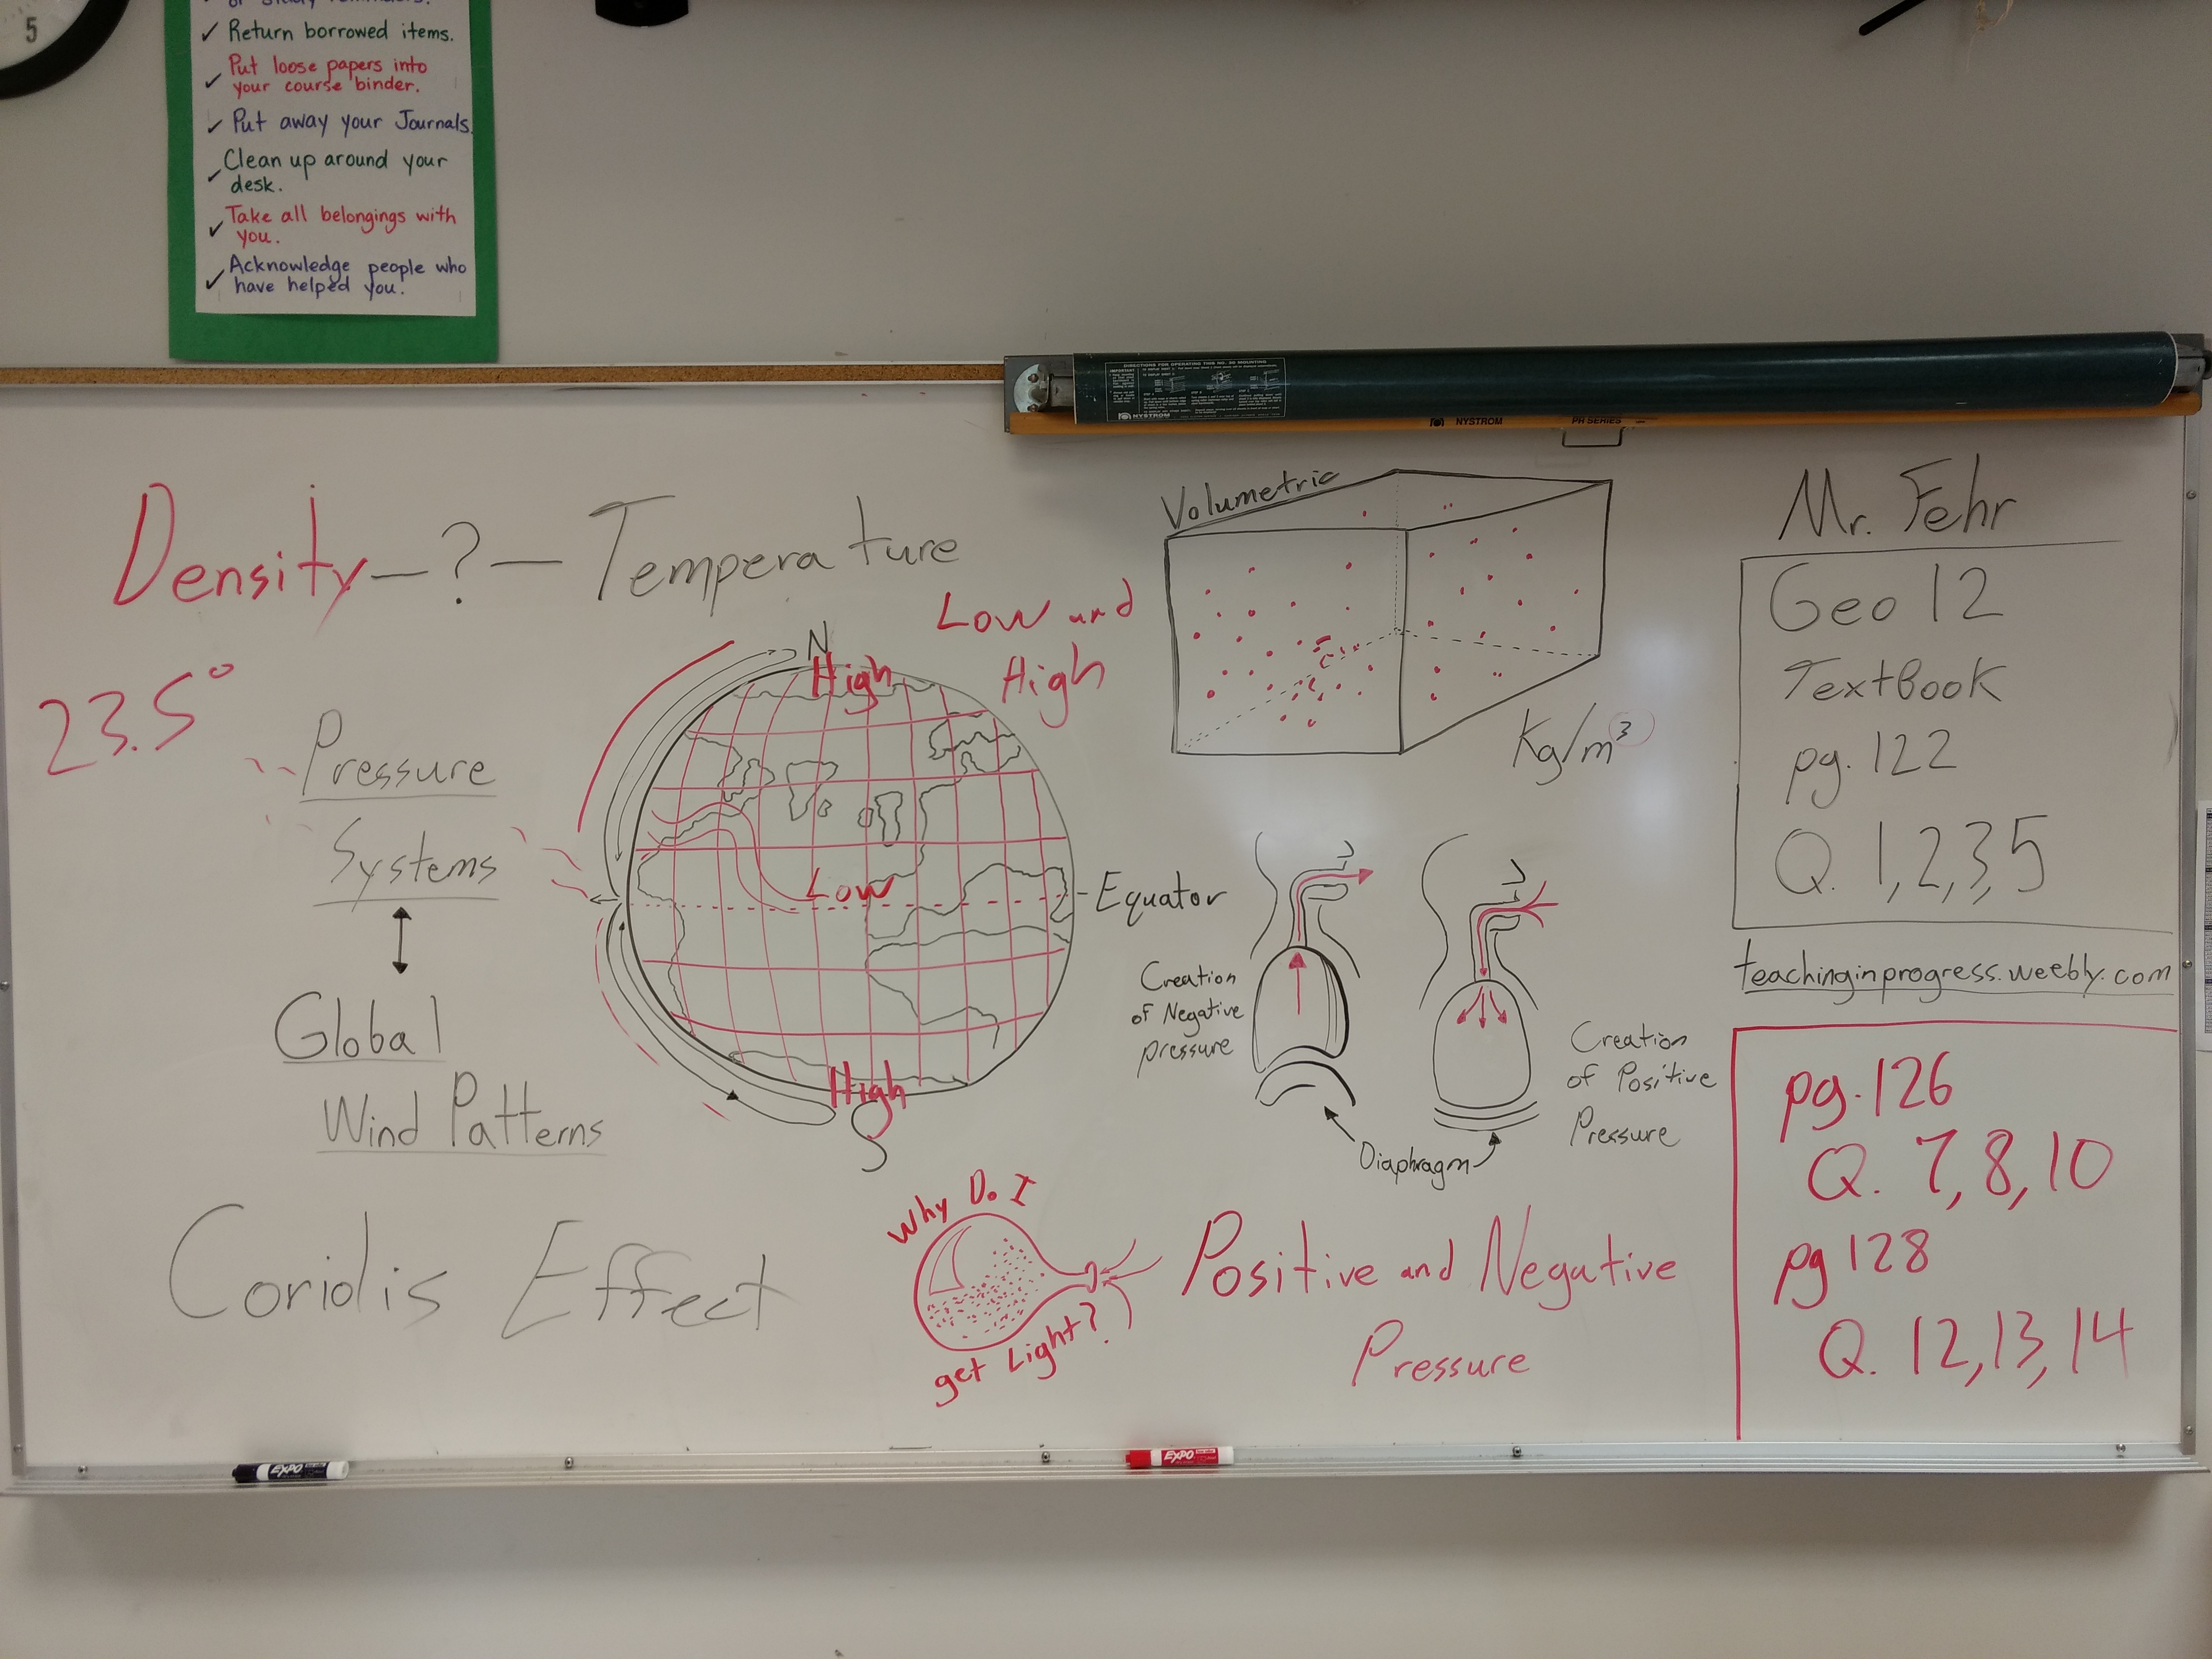 5
Return borrowed items.
Put loose papers into
your course binder.
Put away your Journals.
Clean up around your
desk.
Take all belongings with
you.
Acknowledge people who
have helped you!
NYSTROM
NYSTROM PR SERIES
Density-?-Temperature
23.5°
Pressure
Systems
Global
Wind Patterns
Coriolis Effect
N
High
Low and
High
Low
Equator
High
S
Volumetric
Kg/m³
Creation
of Negative
pressure
Creation
of Positive
Pressure
Diaphragm
Why Do I
get Light?
Positive and Negative
Pressure
Mr. Fehr
Geo 12
TextBook
pg. 122
Q. 1,2,3,5
teachinginprogress.weebly.com
pg. 126
Q. 7, 8, 10
pg 128
Q. 12, 13, 14
EXPO
EXPO